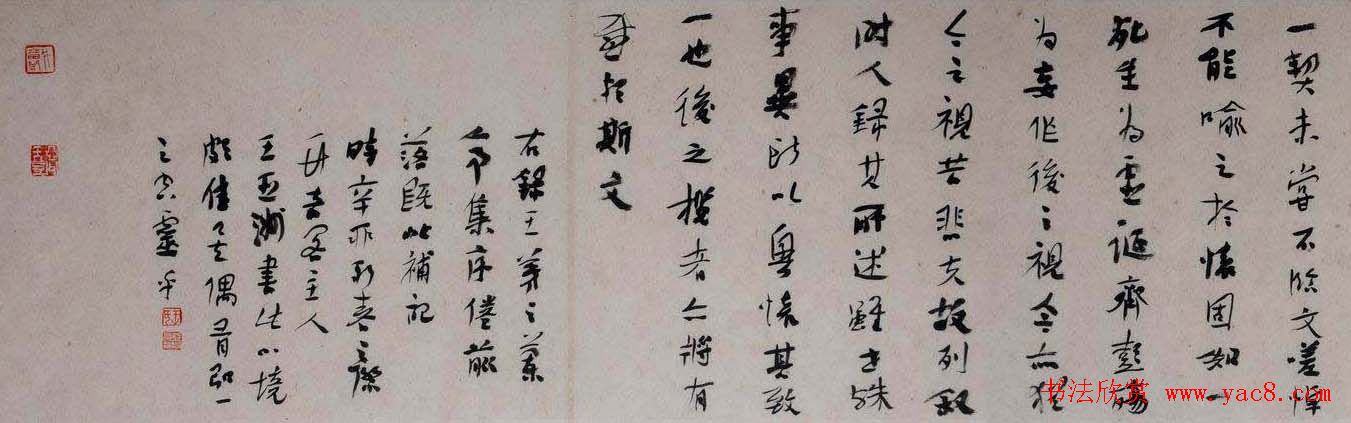 一契未嘗不臨文嗟悼
不能喻之於懷固知一
死生為虛誕齊彭殤
為妄作後之視今亦猶
今之視昔悲夫故列敘
時人錄其所述雖世殊
事異所以興懷其致
一也後之攬者亦將有
感於斯文
右錄王羲之蘭
亭集序
此補記
時辛卯初春之際
主人
王亚洲書此心境
頗佳偶
之
书法欣赏 www.yac8.com